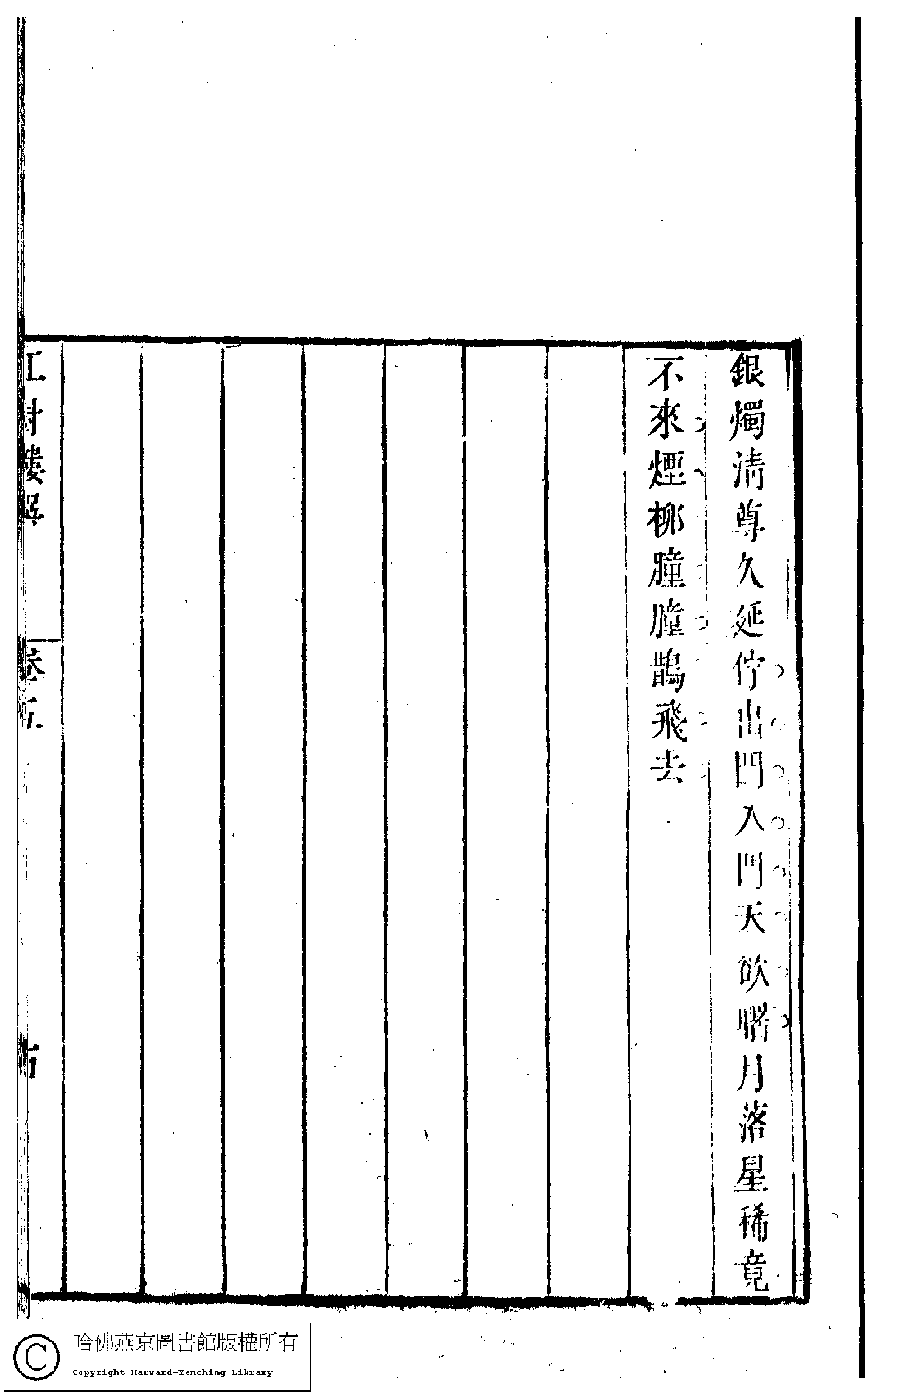 銀燭清尊久延佇出門入門天欲曙月落星稀竟
不來煙柳朣朣鵲飛去
卷五
哈佛燕京圖書館版權所有
Copyright Harvard-Yenching Library